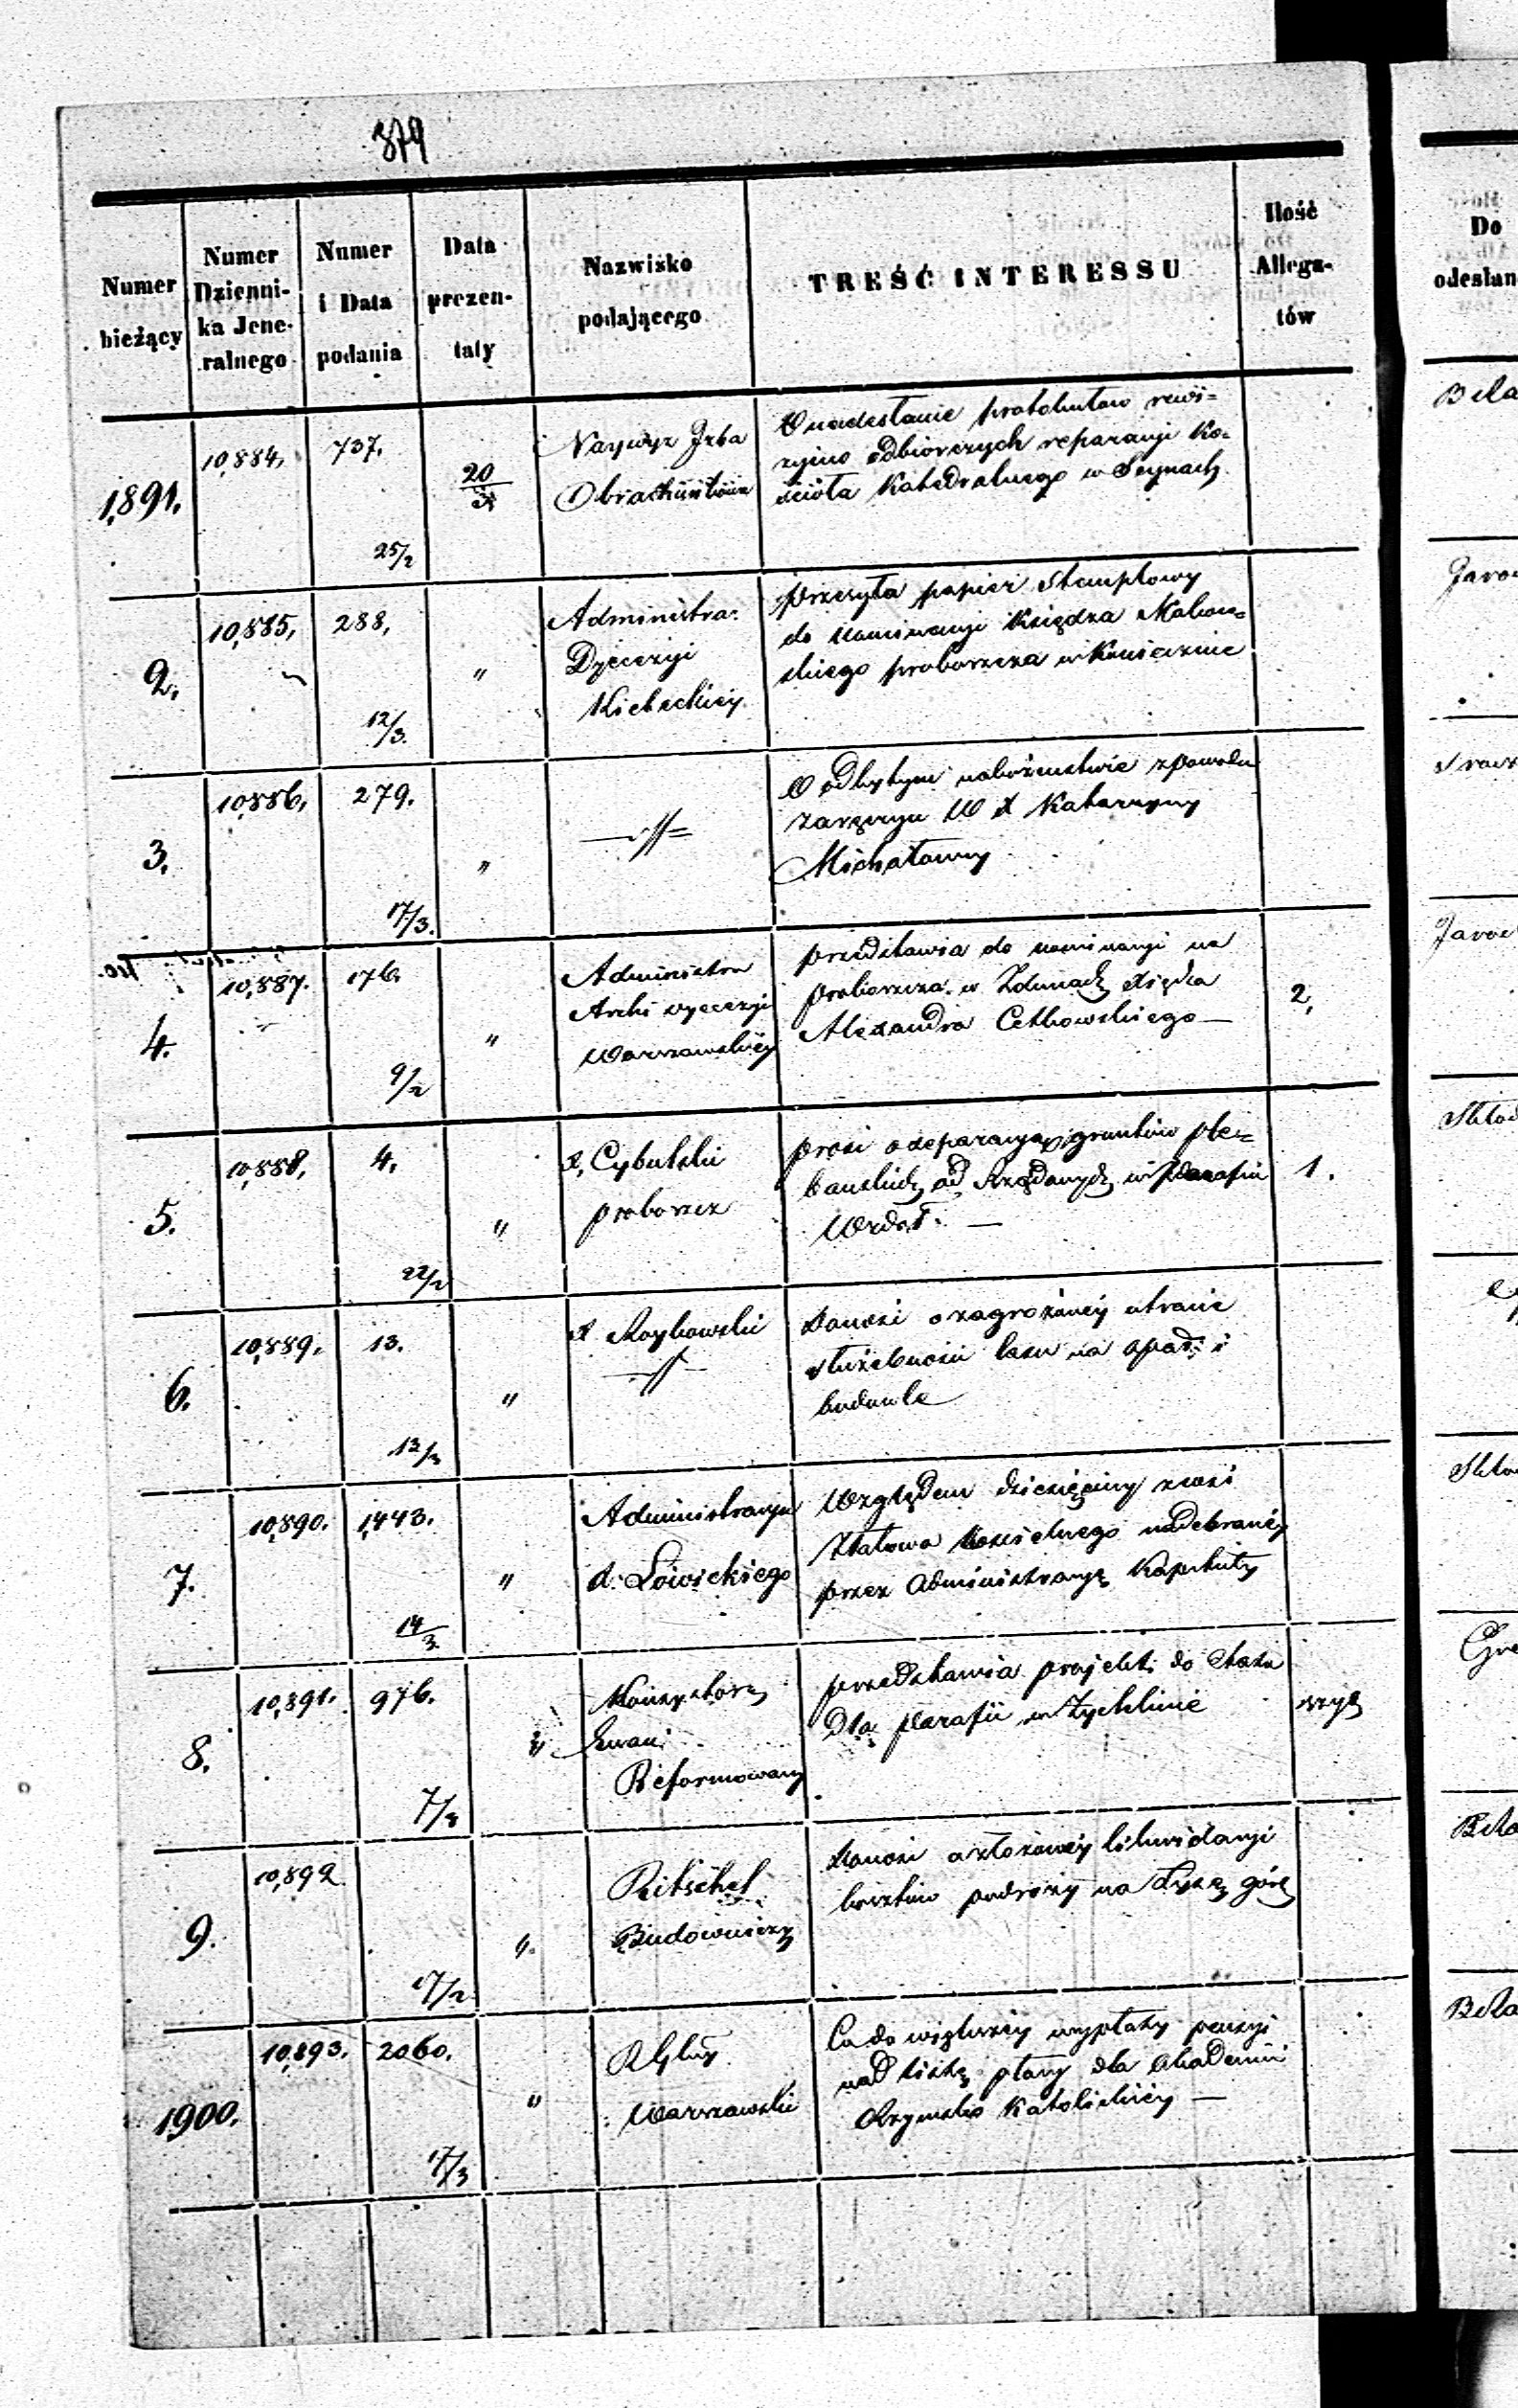 379
Numer bieżący
Numer Dzienni-ka Jene-ralnego
Numer i Data podania
Data prezen-taty
Nazwisko podającego
TREŚĆ INTERESSU
Ilość Allega-tów
Do odesłan
1,891. 10,884. 737. 25/2 20/3
Naywyż Izba
Obrachunkowa
O nadesłanie protokułów rewi=
zyino odbiorczych reparacyi Ko=
ścioła Katedralnego w Seynach
2. 10,885. 288. 12/3 "
Administra:
Dyecezyi
Kieleckiey
przesyła papier stemplowy
do nominacyi Księdza
proboszcza w
3. 10,886. 279. 17/3. "
O odbytym nabożeństwie z powodu
zaręczyn W X Katarzyny
Michałowny
4. 10,887. 176. 9/2 "
Administra
Archi dyecezyi
Warszawskiey
przedstawia do nominacyi na
proboszcza w Zdunach Księdza
Alexandra Cetkowskiego —
2,
5. 10,888. 4. 22/2 "
X. Cybulski
proboszcz
prosi o separacyą gruntów ple=
bańskich od Rządowych w
Wzdół. —
1.
6. 10,889. 13. 13/3 "
X Rozkowski
Donosi o zagrożoney utracie
służebności lasu na opał i
budowle
7. 10,890. 1,443. 14/3 "
Administracya
X. Łowickiego
Względem dziesięciny z wsi
Kościelnego
przez Administracyę Kapituły
8. 10,891. 976. 7/3 "
Konsystorz
Ewan:
Reformowany
przedstawia projekt do etatu
dla parafii w Żychlinie
9. 10,892 17/2 "
Ritschel
Budowniczy
Donosi o złożoney likwidacyi
kosztów podróży na Łysę górę
1900. 10,893. 2060. 17/3 "
R Głny
Warszawski
Co do większey wypłaty pensyi
nad liczbę płacy dla Akademii
Rzymsko Katolickiey —